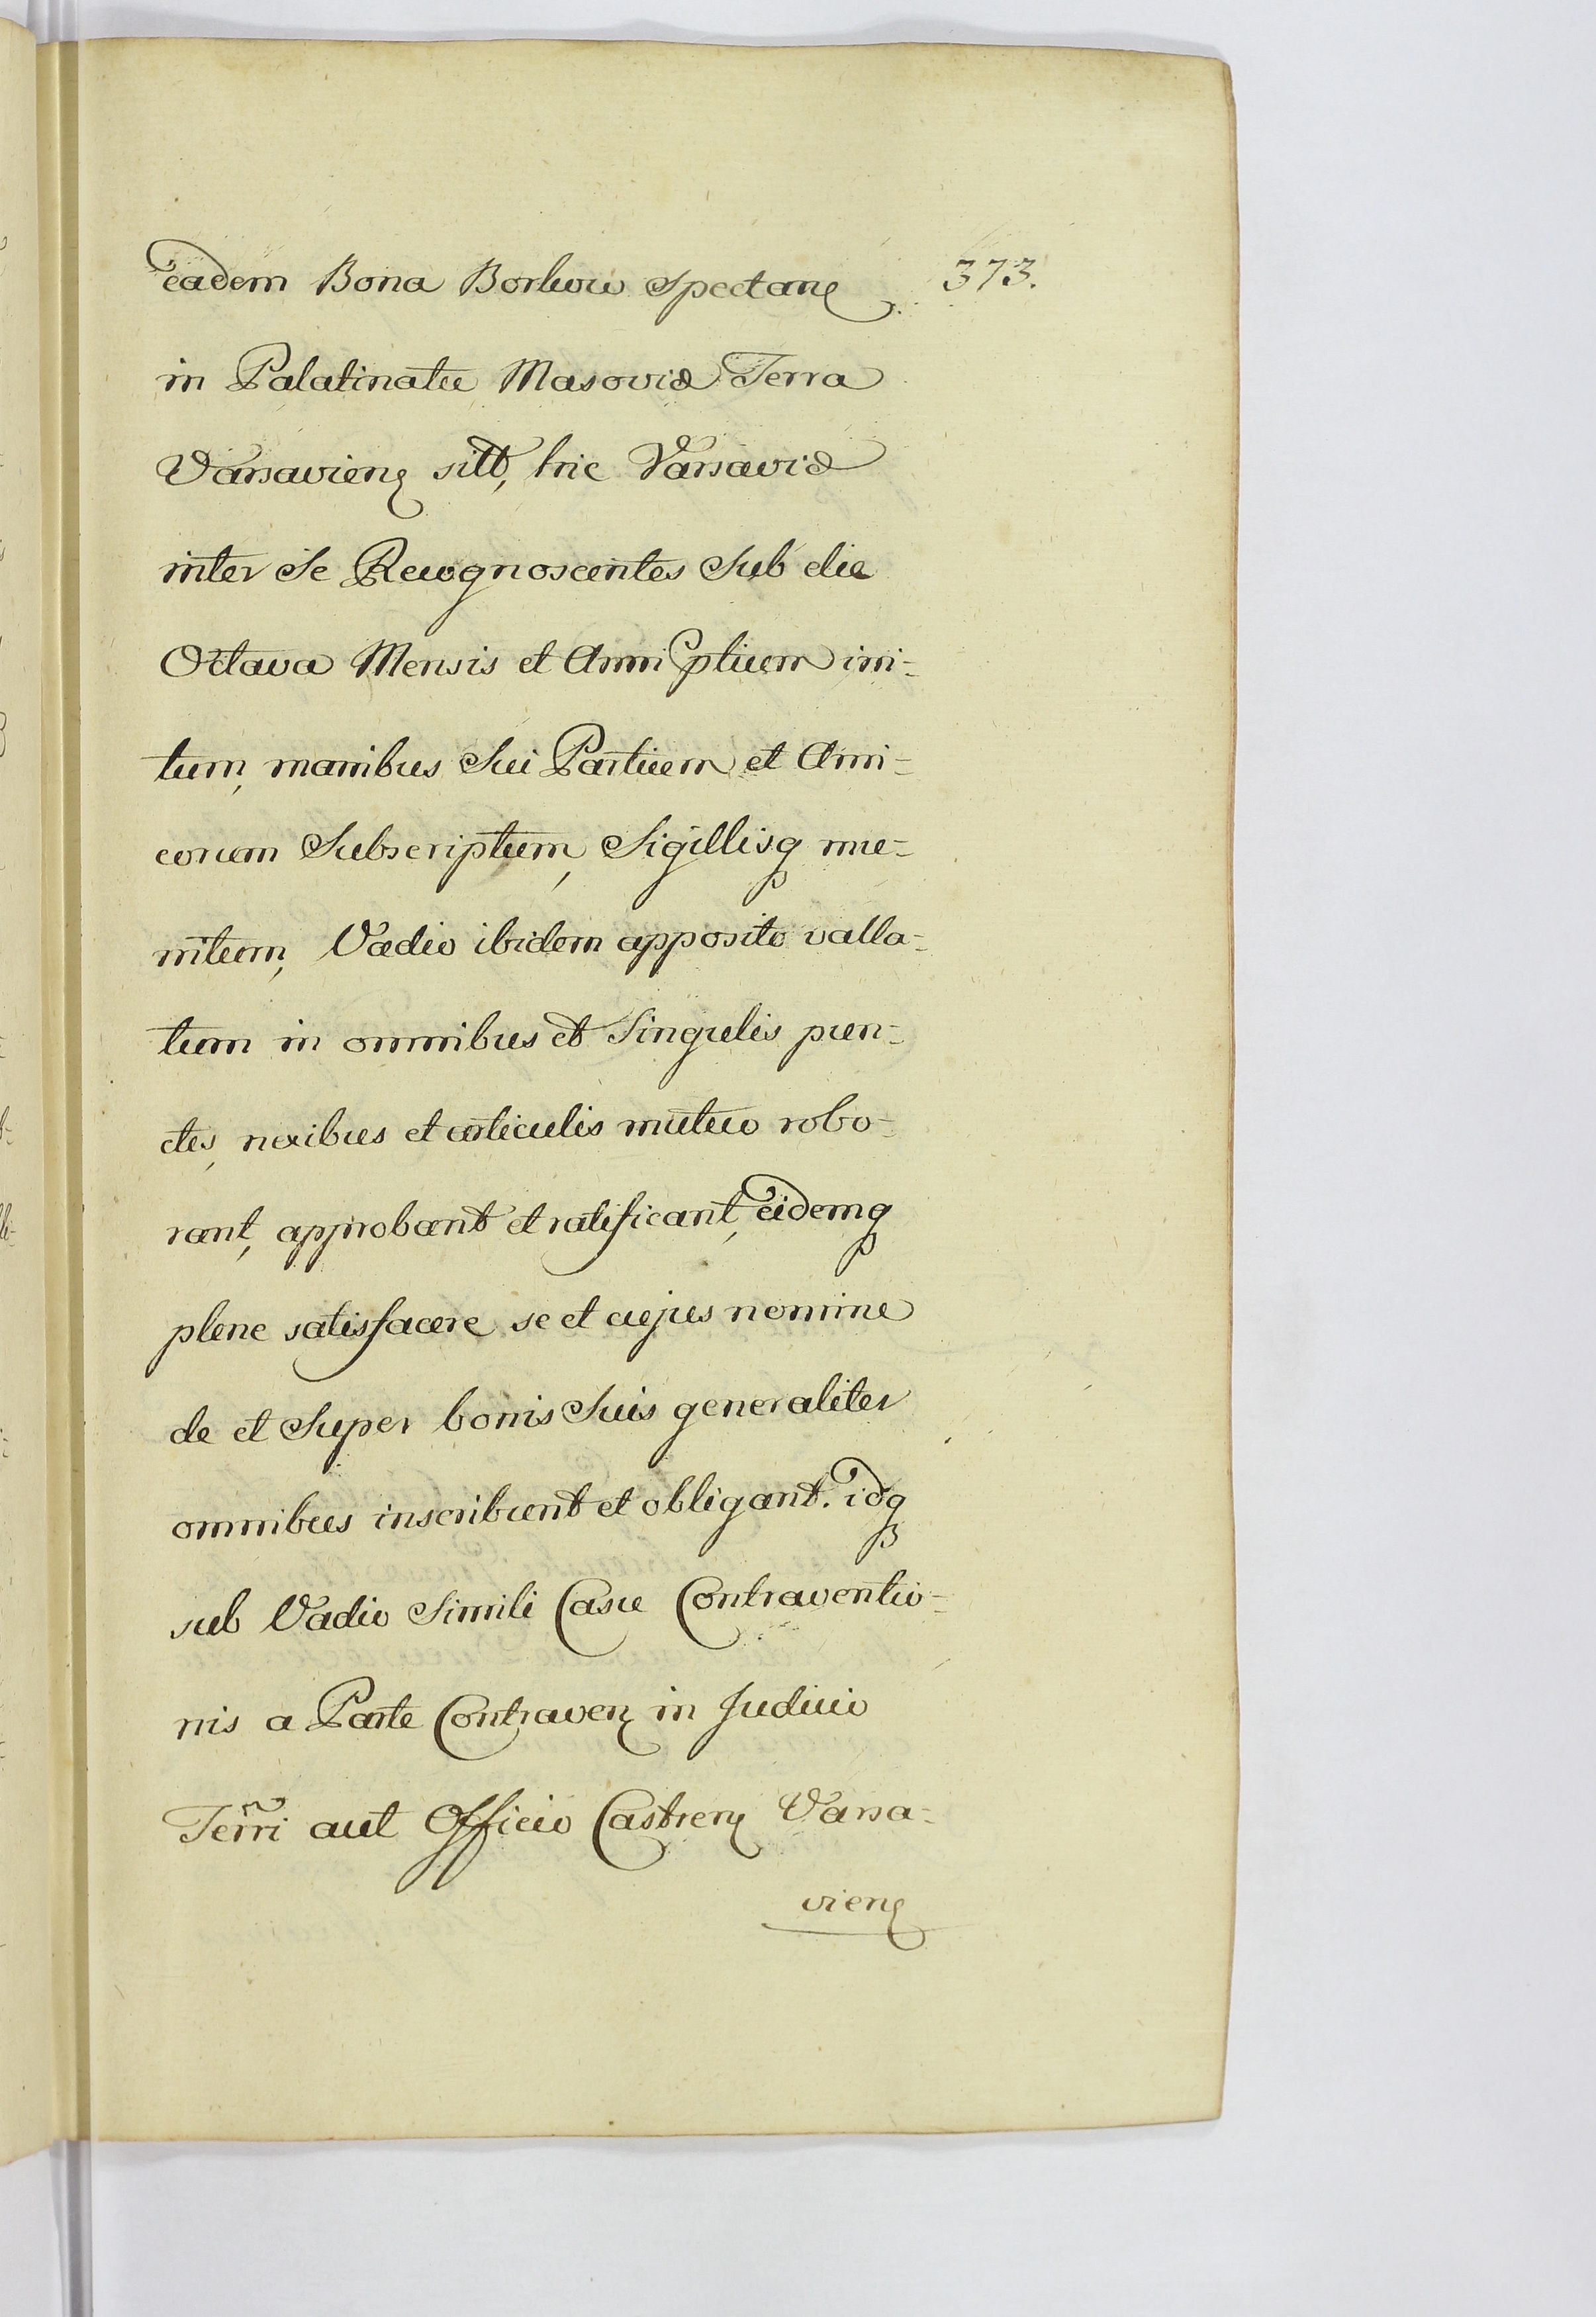 eadem Bona Borkow Spectanȩ 373.
in Palatinatu Masoviæ Terra
Varsavienȩ sitt, hic Varsaviæ
inter Se Recognoscentes Sub die
Octava Mensis et Anni ptium ini=
tum, manibus Sui Partium et Ami=
corum Subscriptum, Sigillisq mu=
nitum, Vadio ibidem apposito valla=
tum in omnibus et Singulis pun=
ctis, nexibus et articulis mutuo robo=
rant, approbant et ratificant, eidemq
plene satisfacere se et cujus nomine
de et Super bonis Suis generaliter
omnibus inscribunt et obligant. idq
sub Vadio Simili Casu Contraventio=
nis a Parte Contravenȩ in Judicio
Terri aut Officio Castrenȩ Varsa=
vienȩ